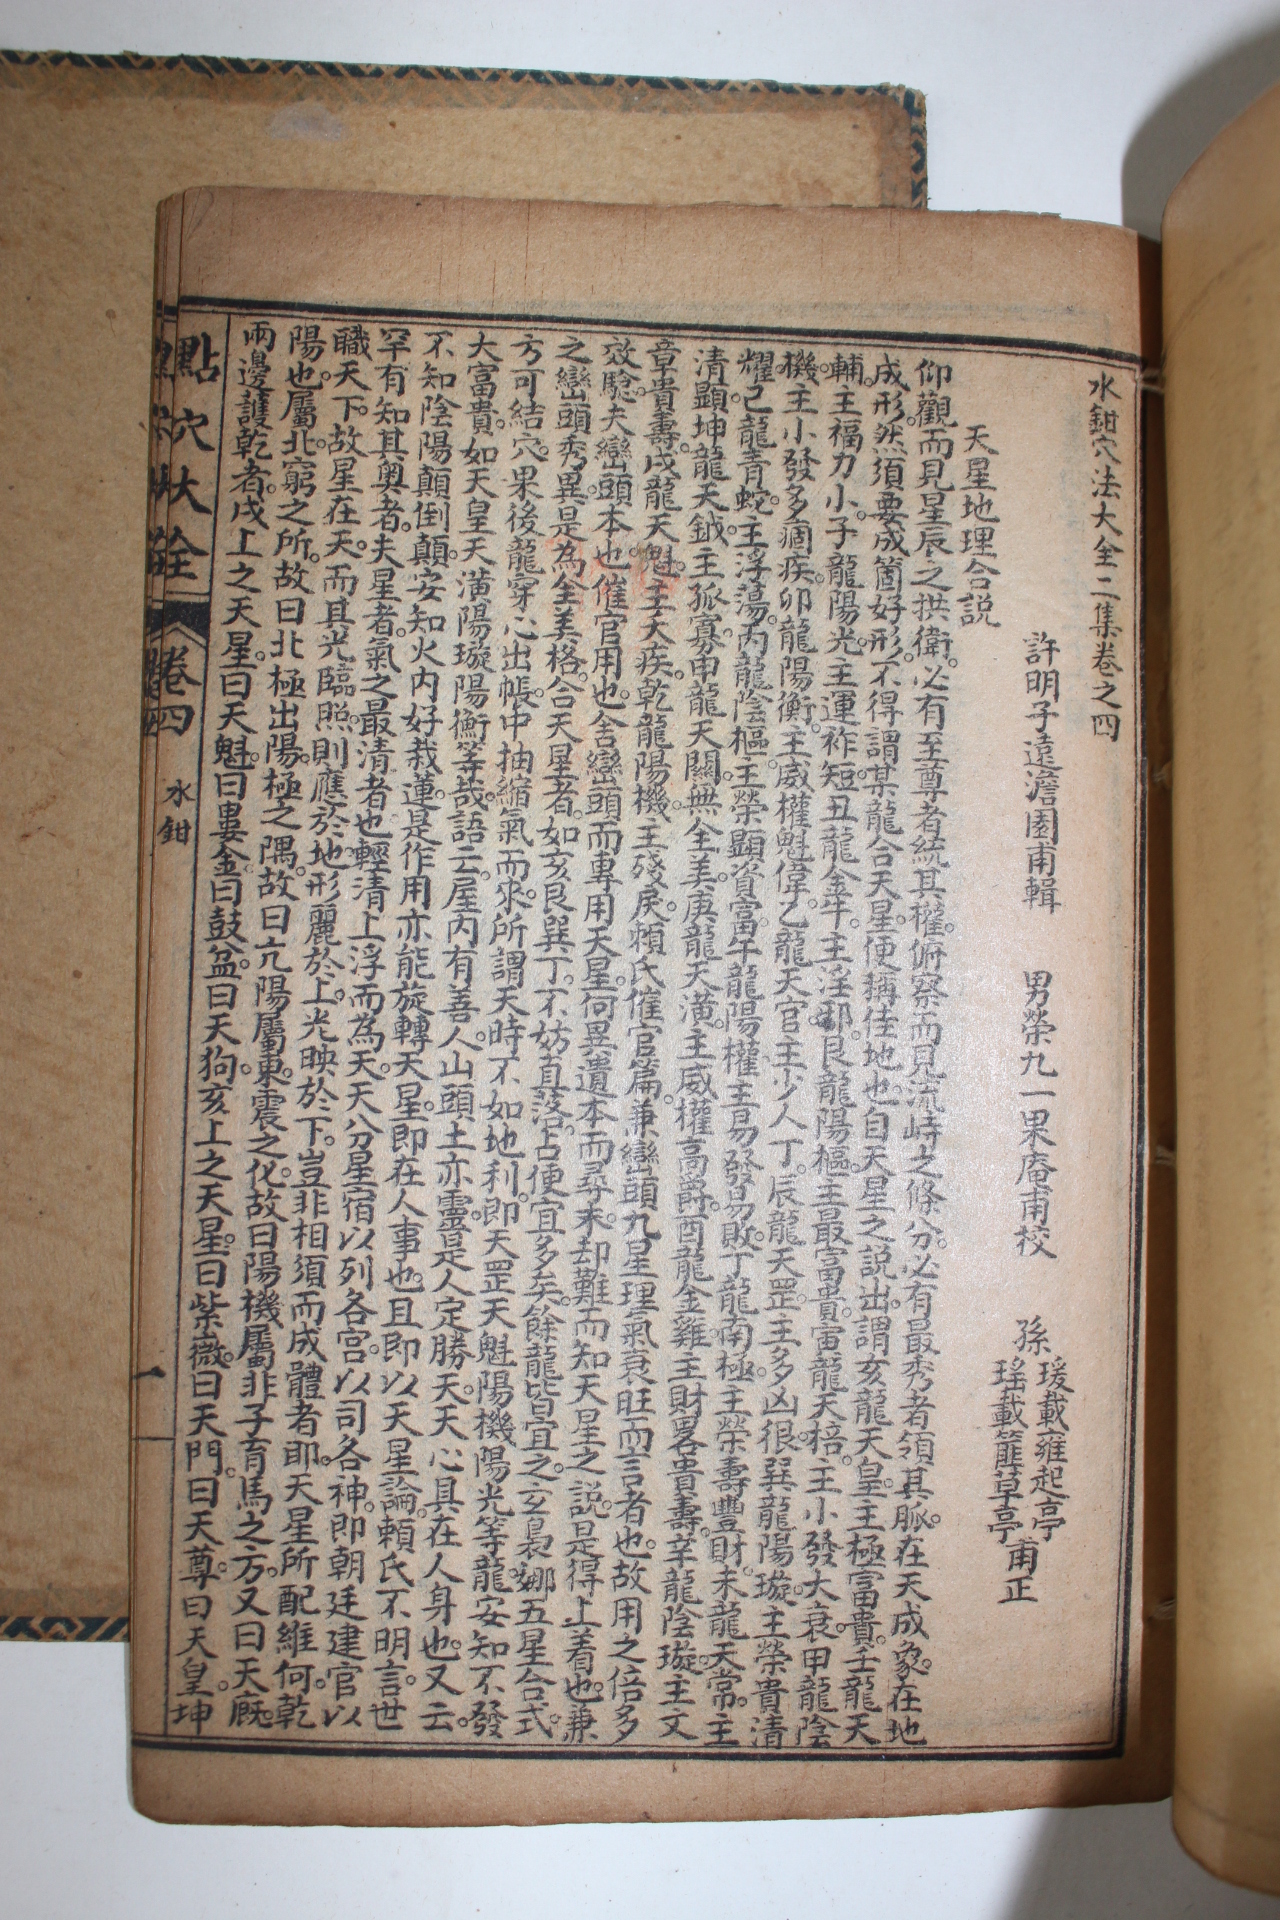 水鉗穴法大全二集卷之四
許明子遠澹園甫輯　男榮九一果庵甫校　孫
瑗載雍起亭
瑤載簏草亭
甫正
天星地理合説
仰觀而見星辰之拱衛。必有至尊者統其權。俯察而見流峙之條分。必有最秀者領其脈。在天成象。在地
成形。然須要成箇好形。不得謂某龍合天星。便稱佳地也。自天星之説出。謂亥龍天皇。主極富貴。壬龍天
輔。主福力小。子龍陽光。主運祚短。丑龍金牛。主淫邪。艮龍陽樞。主最富貴。寅龍天棓。主小發大衰。甲龍陰
機。主小發多痼疾。卯龍陽衡。主威權魁偉。乙龍天官。主少人丁。辰龍天罡。主多凶很。巽龍陽璇。主榮貴清
耀。巳龍青蛇。主浮蕩。丙龍陰樞。主榮顯資富。午龍陽權。主易發易敗。丁龍南極。主榮壽豐財。未龍天常。主
清顯。坤龍天鉞。主孤寡。申龍天關。無全美。庚龍天潢。主威權高爵。酉龍金雞。主財畧貴壽。辛龍陰璇。主文
章貴壽。戌龍天魁。主夭疾。乾龍陽機。主殘戾。頼氏催官篇。兼巒頭九星理氣衰旺而言者也。故用之倍多
效騐。夫巒頭本也。催官用也。舍巒頭而專用天星。何異遺本而尋末。却難而知天星之説。是得上着也。兼
之巒頭秀異。是為全美格。合天星者。如亥艮巽丁。不妨直落占便宜多矣。餘龍皆宜之玄裊娜。五星合式。
方可結穴。果後龍穿心出帳。中抽縮氣而來。所謂天時不如地利。即天罡天魁陽機陽光等龍。安知不發
大富貴。如天皇天潢陽璇陽衡等哉。語云。屋内有善人。山頭土亦靈。是人定勝天。天心具在人身也。又云。
不知陰陽顛倒顛。安知火内好栽蓮。是作用亦能旋轉天星。即在人事也。且即以天星論。頼氏不明言。世
罕有知其奥者。夫星者氣之最清者也。輕清上浮而為天。天分星宿以列各宮。以司各神。即朝廷建官以
職天下。故星在天。而其光臨照。則應於地。形麗於上。光映於下。豈非相須而成體者耶。天星所配維何。乾
陽也。屬北。窮之所。故曰北極出陽。極之隅。故曰亢陽。屬東。震之化。故曰陽機。屬非子育馬之方。又曰天厩。
兩邊護乾者。戌上之天星。曰天魁。曰婁金。曰鼓盆。曰天狗。亥上之天星。曰紫微。曰天門。曰天尊。曰天皇。坤
點穴大全
卷四
水鉗
一